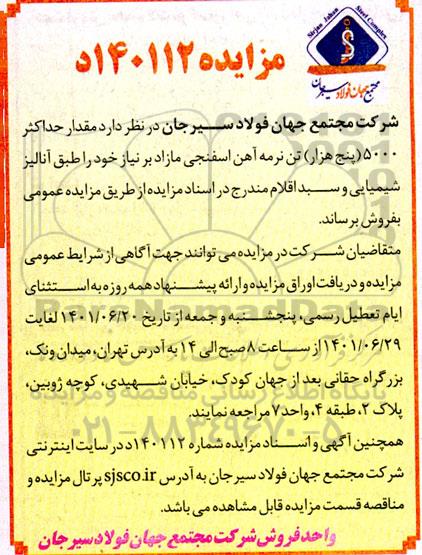 Sirjan Jahan Steel Complex
مجتمع جهان فولاد سیرجان
مزایده ۱۴۰۱۱۲د
شرکت مجتمع جهان فولاد سیرجان در نظر دارد مقدار حداکثر
۵۰۰۰ (پنج هزار) تن نرمه آهن اسفنجی مازاد بر نیاز خود را طبق آنالیز
شیمیایی و سبد اقلام مندرج در اسناد مزایده از طریق مزایده عمومی
بفروش برساند.
متقاضیان شرکت در مزایده می توانند جهت آگاهی از شرایط عمومی
مزایده و دریافت اوراق مزایده و ارائه پیشنهاد همه روزه به استثنای
ایام تعطیل رسمی، پنجشنبه و جمعه از تاریخ ۱۴۰۱/۰۶/۲۰ لغایت
۱۴۰۱/۰۶/۲۹ از ساعت ۸ صبح الی ۱۴ به آدرس تهران، میدان ونک،
بزرگراه حقانی بعد از جهان کودک، خیابان شهیدی، کوچه ژوبین،
پلاک ۲، طبقه ۴، واحد ۷ مراجعه نمایند.
پایگاه اطلاع رسانی مناقصه و مزایده
۰۲۱-۸۸۳۴۹۶۷۰-۵
همچنین آگهی و اسناد مزایده شماره ۱۴۰۱۱۲د در سایت اینترنتی
شرکت مجتمع جهان فولاد سیرجان به آدرس sjsco.ir پرتال مزایده و
مناقصه قسمت مزایده قابل مشاهده می باشد.
واحد فروش شرکت مجتمع جهان فولاد سیرجان